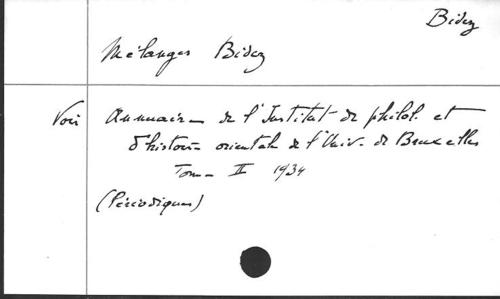 Bidez
Mélanges Bidez
Voir Annuaire de l'Institut de philol. et
d'histoire orientale de l'Univ. de Bruxelles
Tome II 1934
(Périodiques)